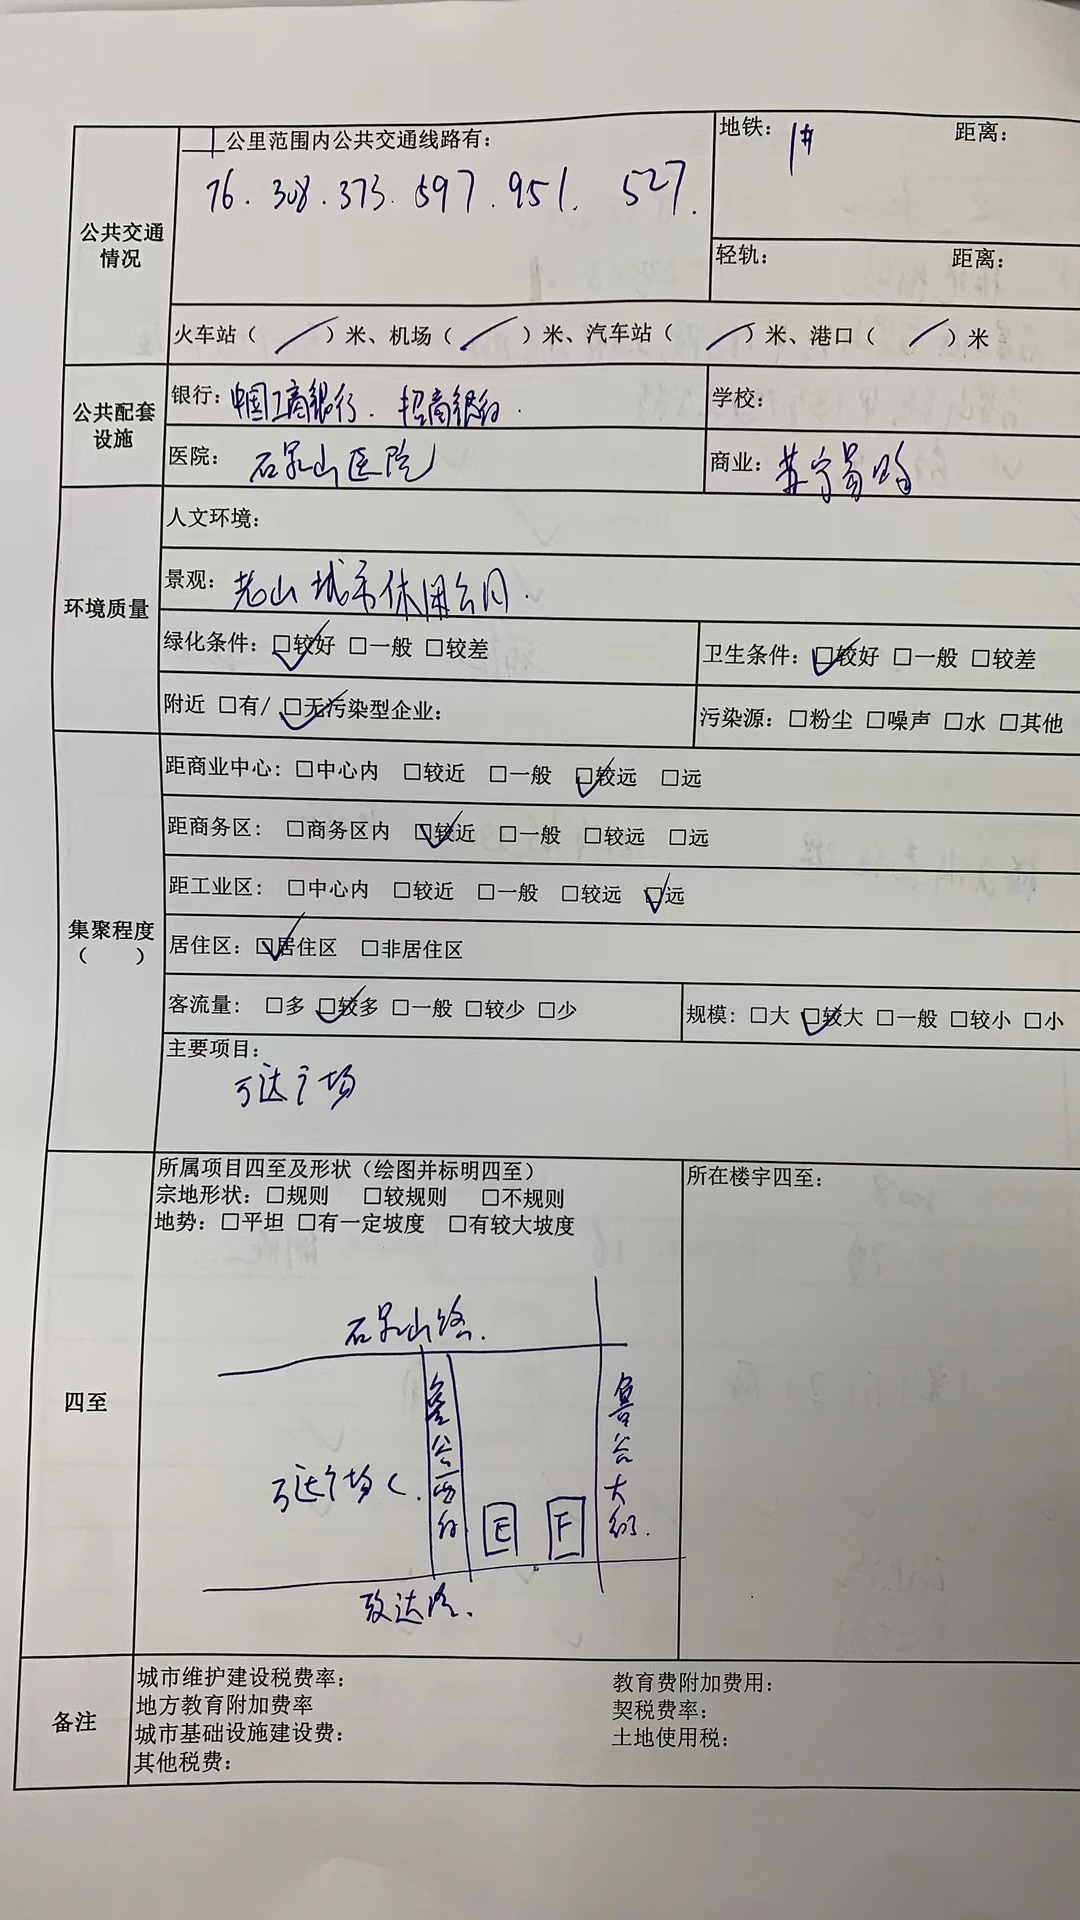 1 公里范围内公共交通线路有：
76. 308. 373. 597. 951. 527.
地铁： 1# 距离：
轻轨： 距离：
公共交通
情况
火车站（ / ）米、机场（ / ）米、汽车站（ / ）米、港口（ / ）米
公共配套
设施
银行：中国工商银行. 招商银行.
学校：
医院： 石景山医院
商业：苏宁易购
环境质量
人文环境：
景观：老山城市休闲公园.
绿化条件：☑较好 □一般 □较差
卫生条件：☑较好 □一般 □较差
附近 □有/ ☑无污染型企业：
污染源：□粉尘 □噪声 □水 □其他
集聚程度
（ ）
距商业中心：□中心内 □较近 □一般 ☑较远 □远
距商务区： □商务区内 ☑较近 □一般 □较远 □远
距工业区： □中心内 □较近 □一般 □较远 ☑远
居住区：☑居住区 □非居住区
客流量： □多 ☑较多 □一般 □较少 □少
规模：□大 ☑较大 □一般 □较小 □小
主要项目：
万达广场
四至
所属项目四至及形状（绘图并标明四至）
宗地形状：□规则 □较规则 □不规则
地势：□平坦 □有一定坡度 □有较大坡度
所在楼宇四至：
石景山路.
万达广场C.
鲁谷西街
E
F
鲁谷大街.
政达路.
备注
城市维护建设税费率：
教育费附加费用：
地方教育附加费率
契税费率：
城市基础设施建设费：
土地使用税：
其他税费：